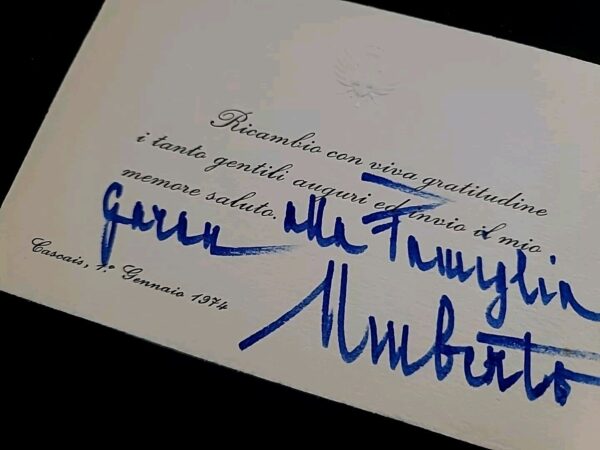 Ricambio con viva gratitudine
i tanto gentili auguri ed invio il mio
memore saluto.
alla Famiglia
Cascais, 1.° Gennaio 1974
Umberto